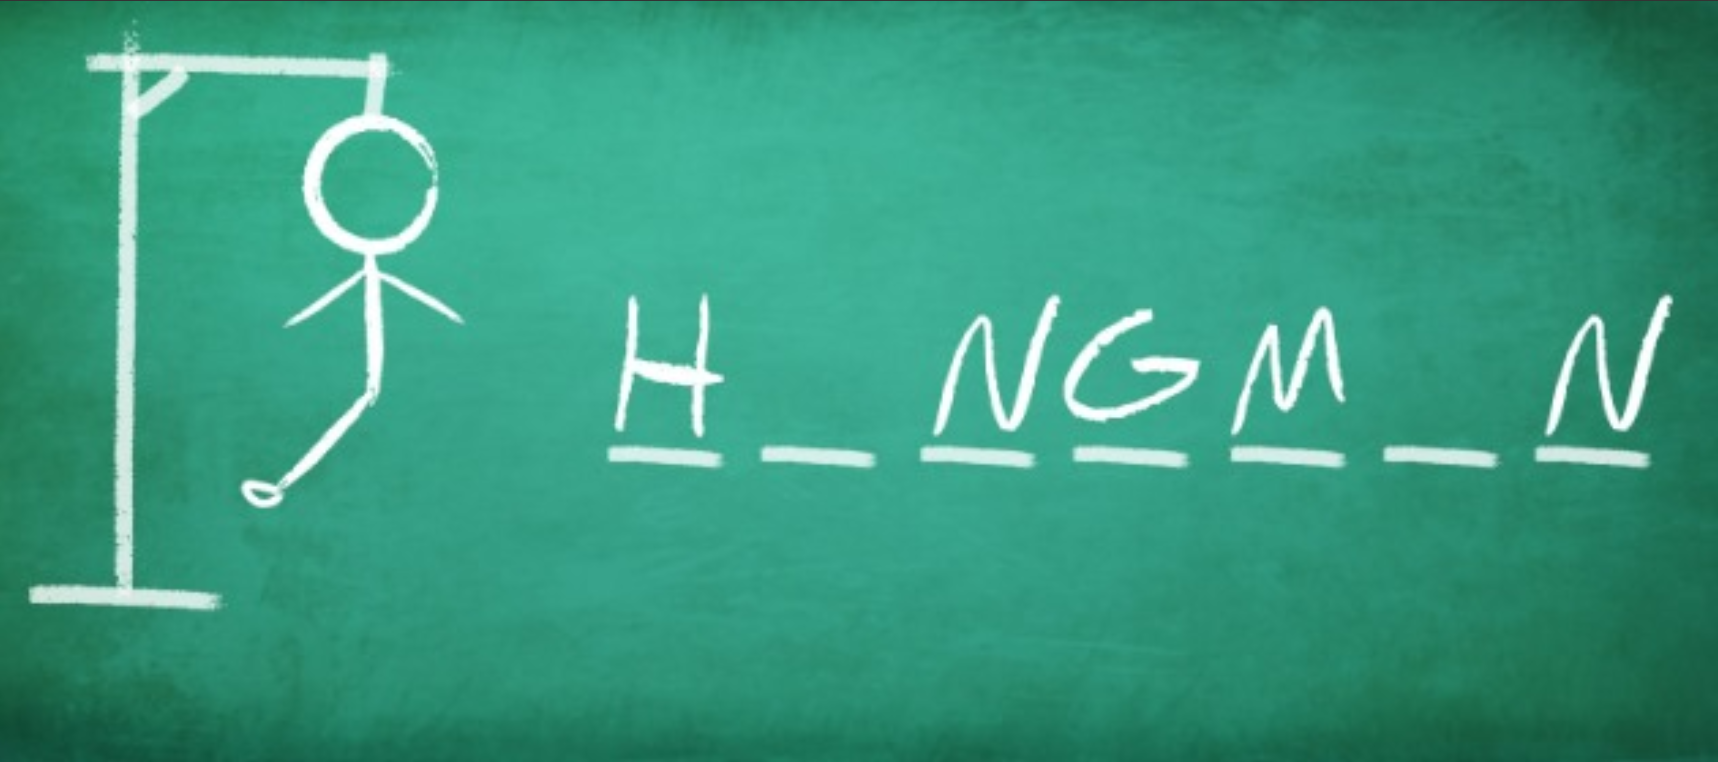 H _ N G M _ N